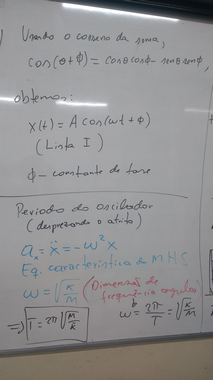 Usando o cosseno da soma,
cos(θ+ϕ) = cosθcosϕ - senθsenϕ,
obtemos:
x(t) = A cos(ωt + ϕ)
(Linha I)
ϕ - constante de fase
Período do oscilador
(desprezando o atrito)
aₓ = ẍ = -ω²x
Eq. característica de M.H.S
ω = √(K/M) (Dimensão de frequência angular)
ω = 2π/T = √(K/M)
=> T = 2π√(M/K)